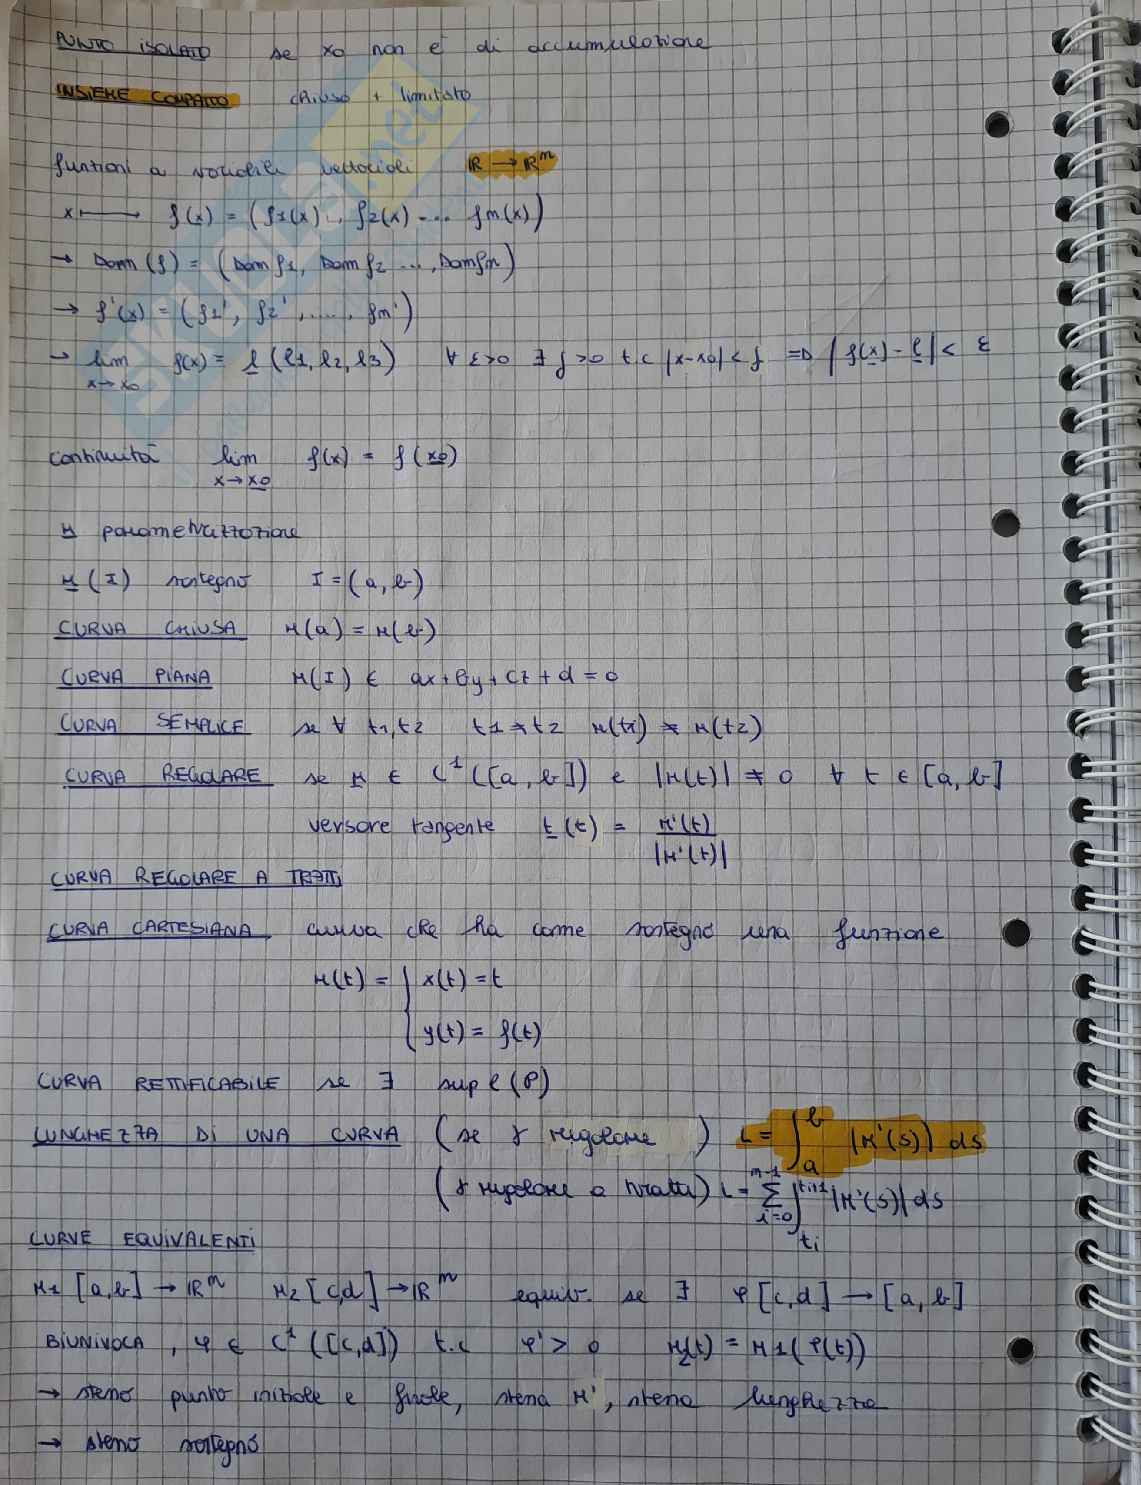 PUNTO ISOLATO se x0 non è di accumulazione
INSIEME COMPATTO chiuso + limitato
SKUOLA.net
funzioni a variabili vettoriali R → Rᵐ
x ⟼ f(x) = (f1(x), f2(x) .... fm(x))
→ Dom(f) = (Dom f1, Dom f2 ..., Dom fm)
→ f'(x) = (f1', f2', ....., fm')
→ lim x→x0 f(x) = l (l1, l2, l3) ∀ ε>0 ∃ δ>0 t.c |x-x0| < δ => |f(x) - l| < ε
continuità lim x→x0 f(x) = f(x0)
r parametrizzazione
r(I) sostegno I = (a, b)
CURVA CHIUSA r(a) = r(b)
CURVA PIANA r(I) ∈ ax+by+cz+d=0
CURVA SEMPLICE se ∀ t1,t2 t1 ≠ t2 r(t1) ≠ r(t2)
CURVA REGOLARE se r ∈ C¹([a, b]) e |r(t)| ≠ 0 ∀ t ∈ [a, b]
versore tangente t(t) = r'(t) / |r'(t)|
CURVA REGOLARE A TRATTI
CURVA CARTESIANA curva che ha come sostegno una funzione
r(t) = { x(t) = t
y(t) = f(t)
CURVA RETTIFICABILE se ∃ sup l(P)
LUNGHEZZA DI UNA CURVA (se γ regolare) L = ∫ₐᵇ |r'(s)| ds
(γ regolare a tratti) L = Σ_{i=0}^{m-1} ∫_{ti}^{ti+1} |r'(s)| ds
CURVE EQUIVALENTI
r1 [a,b] → Rᵐ r2 [c,d] → Rᵐ equiv. se ∃ φ [c,d] → [a, b]
BIUNIVOCA, φ ∈ C¹([c,d]) t.c φ' > 0 r2(t) = r1(φ(t))
→ stesso punto iniziale e finale, stessa r', stessa lunghezza
→ stesso sostegno